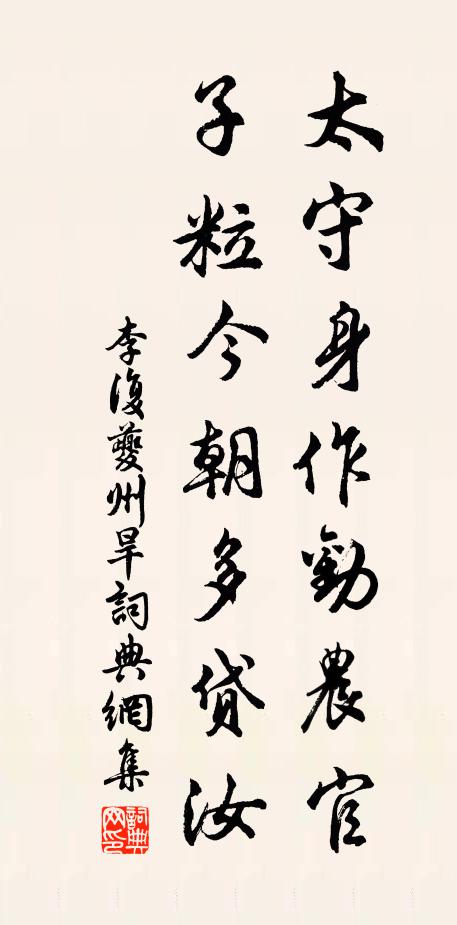 太守身作勸農官
子粒今朝多貸汝
李復夔州旱詞典網集
詞典網印